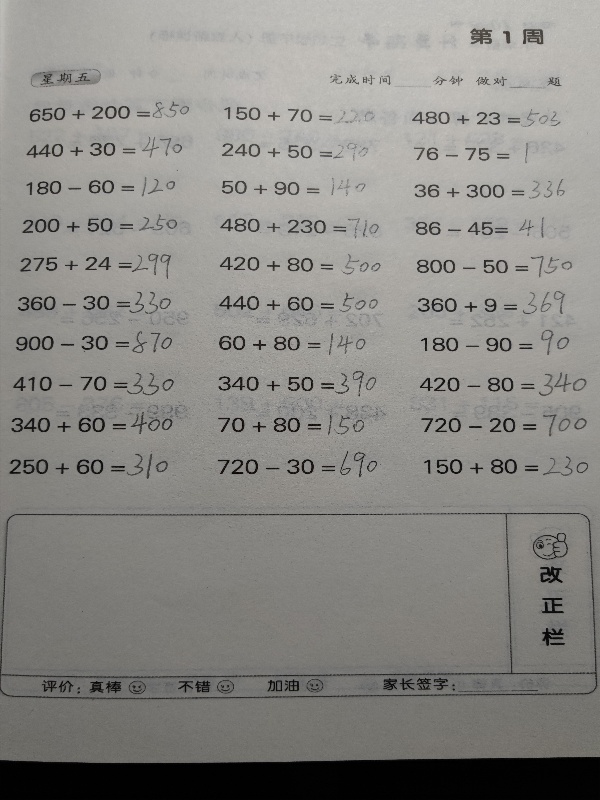 第1周
星期五 完成时间____分钟 做对____题
650+200=850 150+70=220 480+23=503
440+30=470 240+50=290 76-75=1
180-60=120 50+90=140 36+300=336
200+50=250 480+230=710 86-45=41
275+24=299 420+80=500 800-50=750
360-30=330 440+60=500 360+9=369
900-30=870 60+80=140 180-90=90
410-70=330 340+50=390 420-80=340
340+60=400 70+80=150 720-20=700
250+60=310 720-30=690 150+80=230
改正栏
评价：真棒 不错 加油 家长签字：________